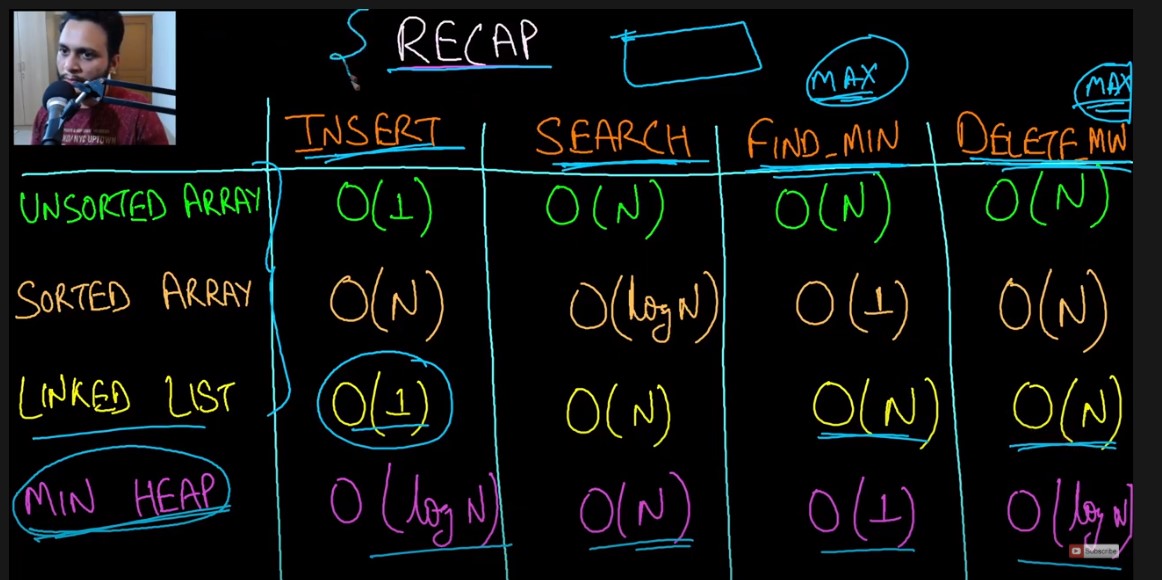 RECAP
MAX
MAX
INSERT SEARCH FIND_MIN DELETE MIN
UNSORTED ARRAY O(1) O(N) O(N) O(N)
SORTED ARRAY O(N) O(log N) O(1) O(N)
LINKED LIST O(1) O(N) O(N) O(N)
MIN HEAP O(log N) O(N) O(1) O(log N)
Subscribe